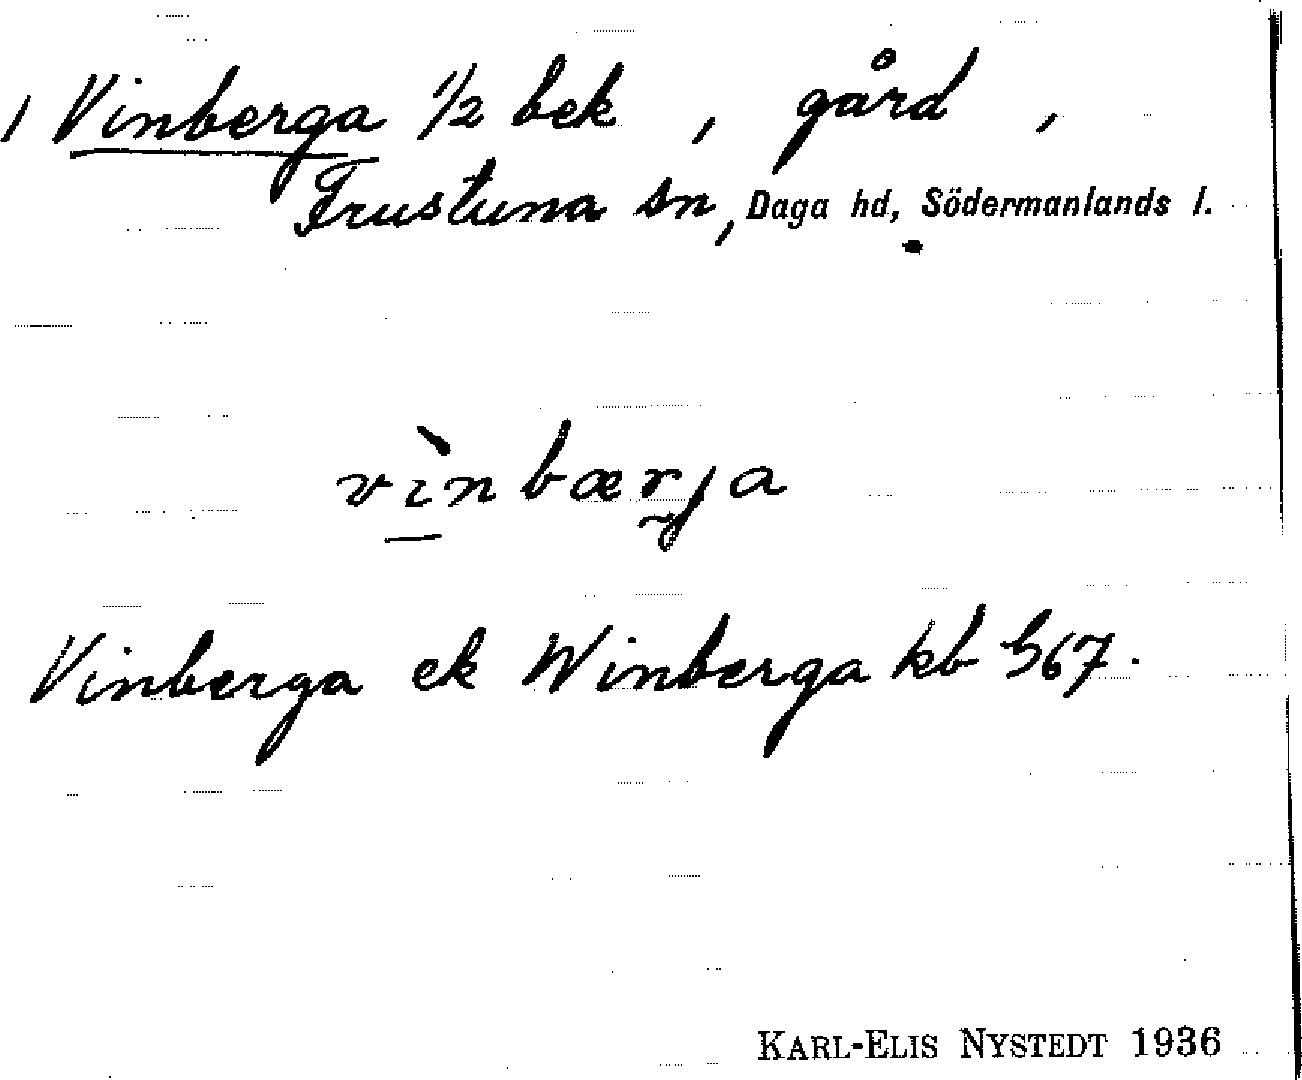 1 Vinberga 1/2 bek , gård ,
Frustuna sn, Daga hd, Södermanlands l.
vìnbærja
Vinberga ek Winberga kb 567.
KARL-ELIS NYSTEDT 1936